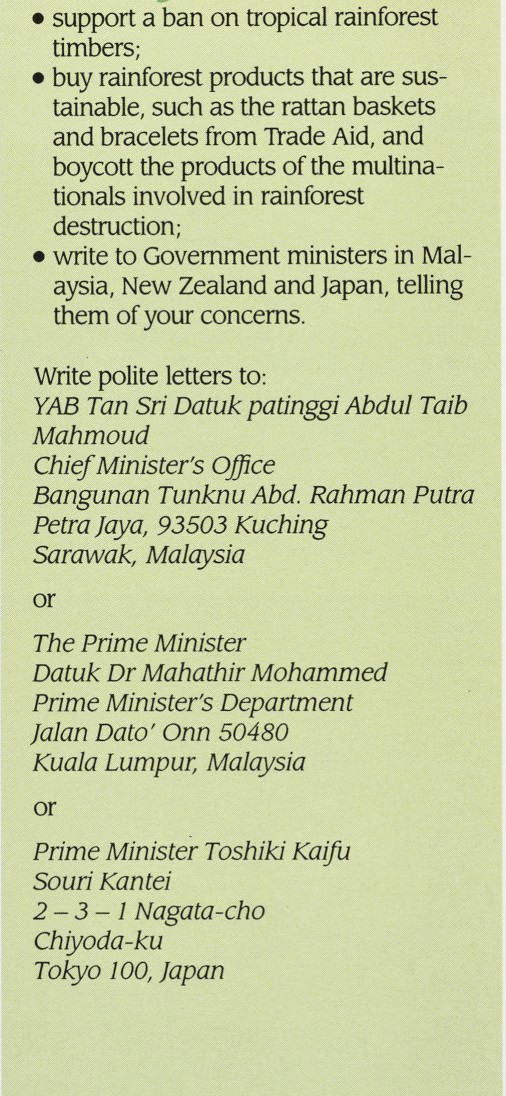 • support a ban on tropical rainforest
timbers;
• buy rainforest products that are sus-
tainable, such as the rattan baskets
and bracelets from Trade Aid, and
boycott the products of the multina-
tionals involved in rainforest
destruction;
• write to Government ministers in Mal-
aysia, New Zealand and Japan, telling
them of your concerns.
Write polite letters to:
YAB Tan Sri Datuk patinggi Abdul Taib
Mahmoud
Chief Minister's Office
Bangunan Tunknu Abd. Rahman Putra
Petra Jaya, 93503 Kuching
Sarawak, Malaysia
or
The Prime Minister
Datuk Dr Mahathir Mohammed
Prime Minister's Department
Jalan Dato' Onn 50480
Kuala Lumpur, Malaysia
or
Prime Minister Toshiki Kaifu
Souri Kantei
2 – 3 – 1 Nagata-cho
Chiyoda-ku
Tokyo 100, Japan